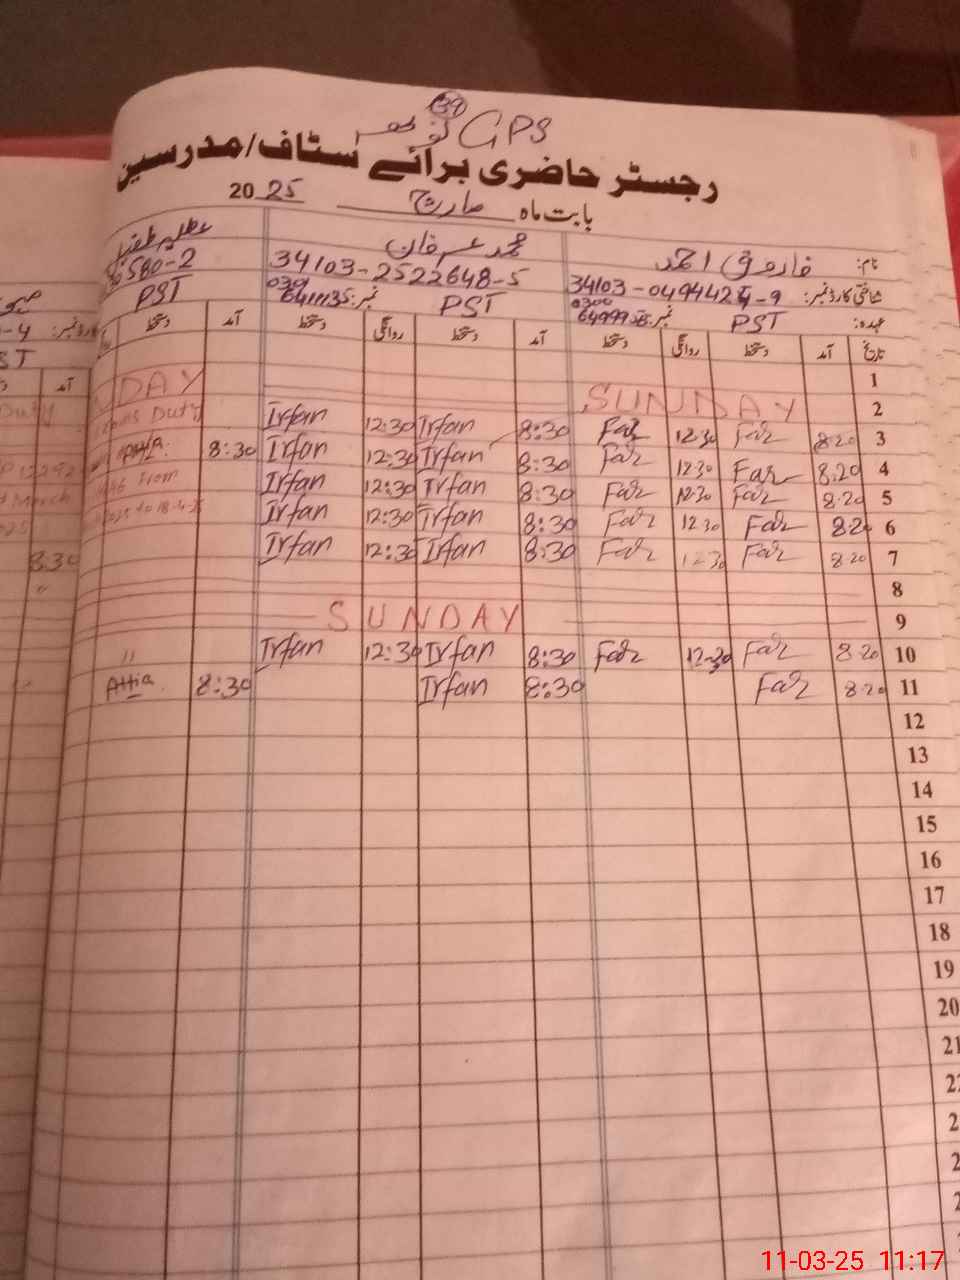 39
GPS
رجسٹر حاضری برائے سٹاف/مدرسین
بابت ماہ مارچ 2025
نام: فاروق احمد محمد عرفان
شناختی کارڈ نمبر: 34103-0494424-9 34103-2522648-5 580-2
عہدہ: PST نمبر: 0300 PST نمبر: PST
تاریخ آمد دستخط روانگی دستخط آمد دستخط روانگی دستخط آمد دستخط
1
2 SUNDAY NDAY
3 8:20 Far 12:30 Far 8:30 Irfan 12:30 Irfan Duty
4 8:20 Far 12:30 Far 8:30 Irfan 12:30 Irfan 8:30
5 8:20 Far 12:30 Far 8:30 Irfan 12:30 Irfan From
6 8:20 Far 12:30 Far 8:30 Irfan 12:30 Irfan
7 8:20 Far 12:30 Far 8:30 Irfan 12:30 Irfan
8
9 SUNDAY
10 8:20 Far 12:30 Far 8:30 Irfan 12:30 Irfan "
11 8:20 Far 8:30 Irfan 8:30 Attia
12
13
14
15
16
17
18
19
20
21
آمد
Duty
March
8:30
"
11-03-25 11:17